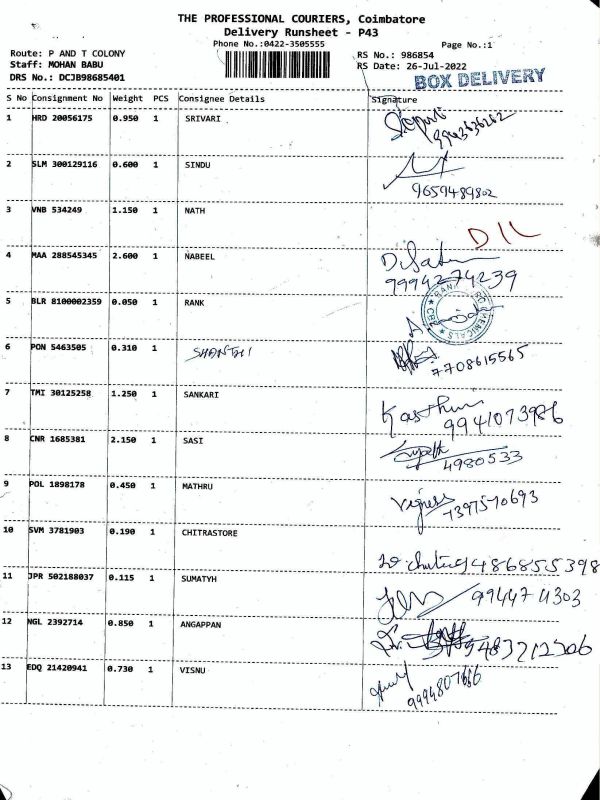 THE PROFESSIONAL COURIERS, Coimbatore
Delivery Runsheet - P43
Phone No.:0422-3505555
Page No.:1
Route: P AND T COLONY
RS No.: 986854
Staff: MOHAN BABU
RS Date: 26-Jul-2022
DRS No.: DCJB98685401
BOX DELIVERY
S No Consignment No Weight PCS Consignee Details Signature
1 HRD 20056175 0.950 1 SRIVARI
2 SLM 300129116 0.600 1 SINDU
9659489802
3 VNB 534249 1.150 1 NATH
D/L
4 MAA 288545345 2.600 1 NABEEL
9994274239
5 BLR 8100002359 0.050 1 RANK
6 PON 5463505 0.310 1 SHANTHI
7708615565
7 TMI 30125258 1.250 1 SANKARI
9941073986
8 CNR 1685381 2.150 1 SASI
4980533
9 POL 1898178 0.450 1 MATHRU
7397570693
10 SVM 3781903 0.190 1 CHITRASTORE
9486855398
11 JPR 502188037 0.115 1 SUMATYH
12 NGL 2392714 0.850 1 ANGAPPAN
13 EDQ 21420941 0.730 1 VISNU